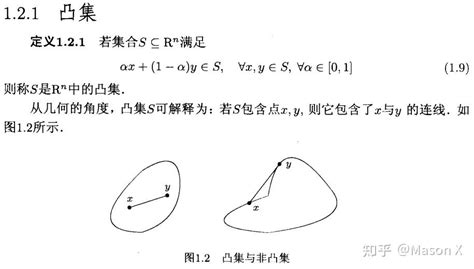 1.2.1 凸集
定义1.2.1 若集合S ⊆ Rⁿ满足
αx + (1 − α)y ∈ S, ∀x, y ∈ S, ∀α ∈ [0, 1] (1.9)
则称S是Rⁿ中的凸集.
从几何的角度, 凸集S可解释为: 若S包含点x, y, 则它包含了x与y 的连线. 如
图1.2所示.
y
x
y
x
图1.2 凸集与非凸集
知乎 @Mason X